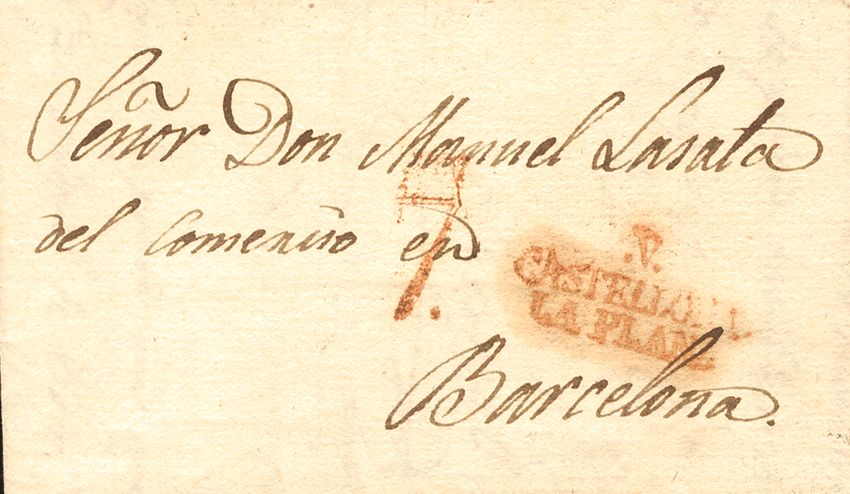 Señor Don Manuel Lasata
del Comercio en
.V.
CASTELLON
LA PLANA
Barcelona.